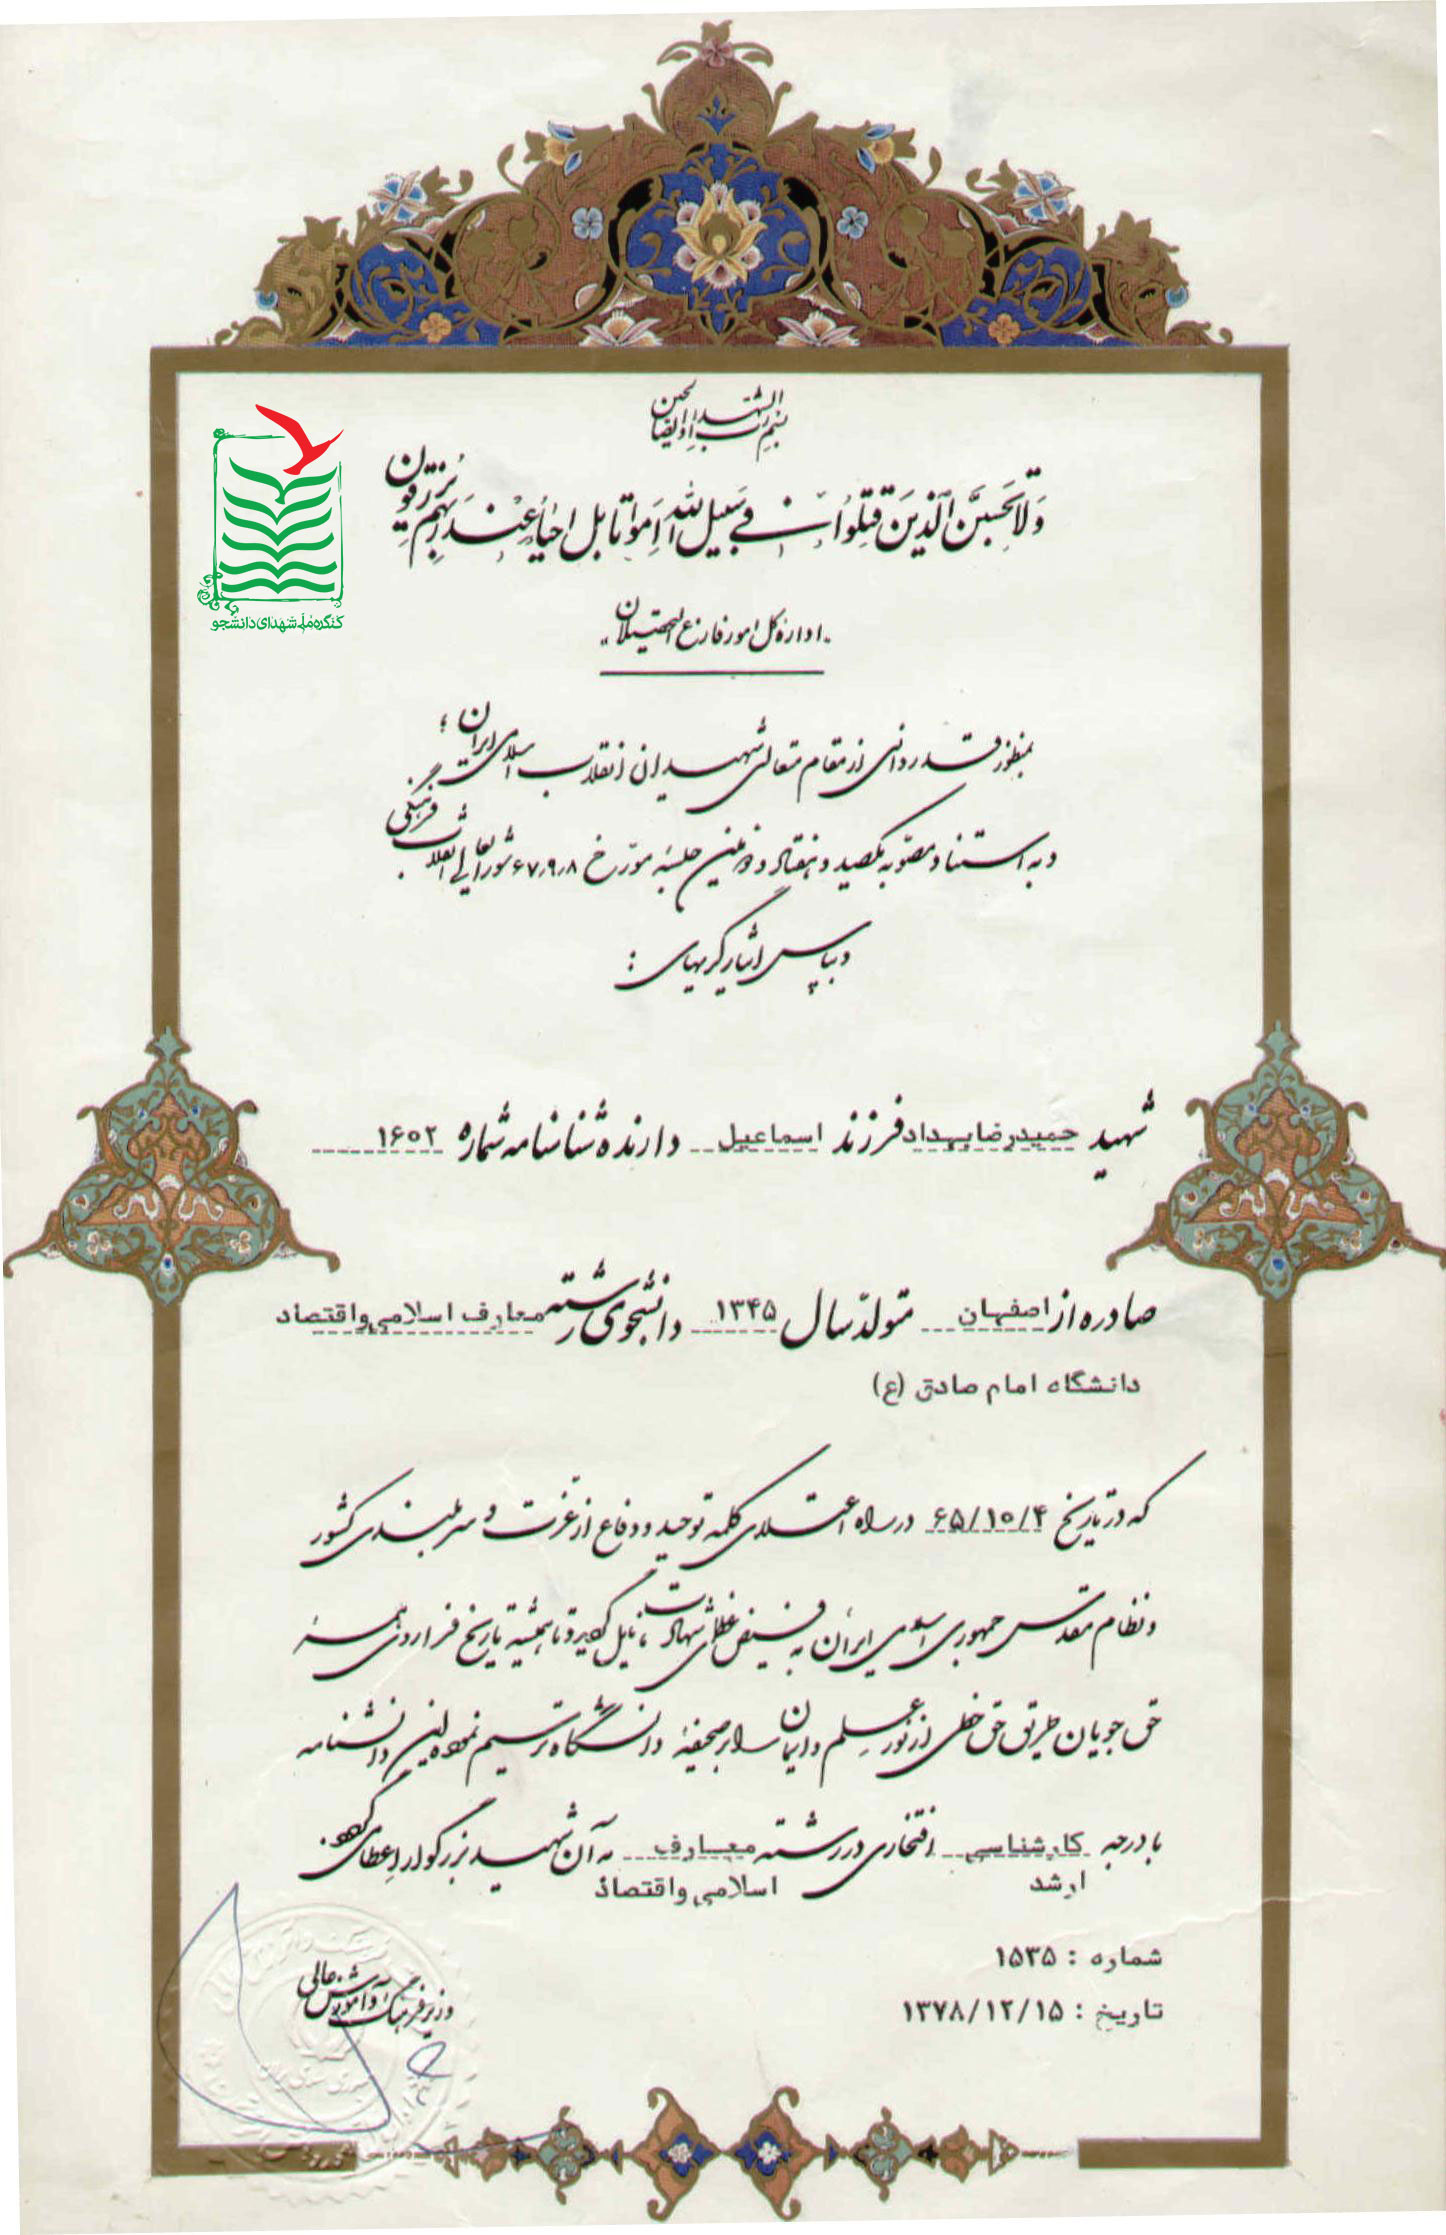 بسم رب الشهداء و الصالحین
وَلا تَحسَبَنَّ الَّذینَ قُتِلُوا فی سَبیلِ اللهِ اَمواتا بَل اَحیاءٌ عِندَ رَبِّهِم یُرزَقُون
کنگره ملی شهدای دانشجو
«اداره کل امور فارغ التحصیلان»
بمنظور قدردانی از مقام متعالی شهیدان انقلاب اسلامی ایران ؛
و به استناد مصوبه یکصد و هفتاد و دومین جلسه مورخ ۶۷٫۹٫۸ شورایعالی انقلاب فرهنگی
و بپاس ایثارگریهای :
شهید حمیدرضا بهداد فرزند اسماعیل دارنده شناسنامه شماره ۱۶۰۲
صادره از اصفهان متولد سال ۱۳۴۵ دانشجوی رشته معارف اسلامی و اقتصاد
دانشگاه امام صادق (ع)
که در تاریخ ۶۵/۱۰/۴ در راه اعتلای کلمه توحید و دفاع از عزت و سربلندی کشور
و نظام مقدس جمهوری اسلامی ایران به فیض عظمای شهادت نایل گردید و تا همیشه تاریخ فرا روی همه
حق جویان طریق حق خطی از نور علم و ایمان را بر صحیفه دانشگاه ترسیم نموده این دانشنامه
با درجه کارشناسی افتخاری در رشته معارف به آن شهید بزرگوار اعطا می گردد.
ارشد اسلامی و اقتصاد
شماره : ۱۵۳۵
تاریخ : ۱۳۷۸/۱۲/۱۵
وزیر فرهنگ و آموزش عالی